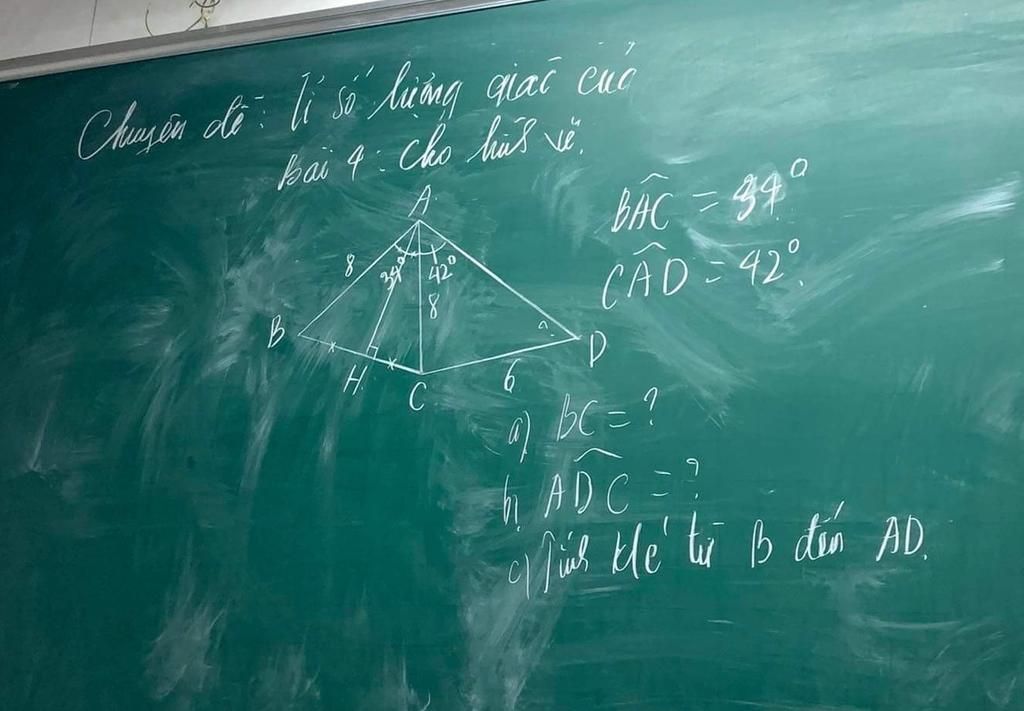 Chuyên đề: Tỉ số lượng giác của
Bài 4: Cho hình vẽ.
A
8
34°
42°
8
B
H
C
6
?
D
BAC = 34°
CAD = 42°.
a) BC = ?
b) ADC = ?
c) Tính k/c từ B đến AD.